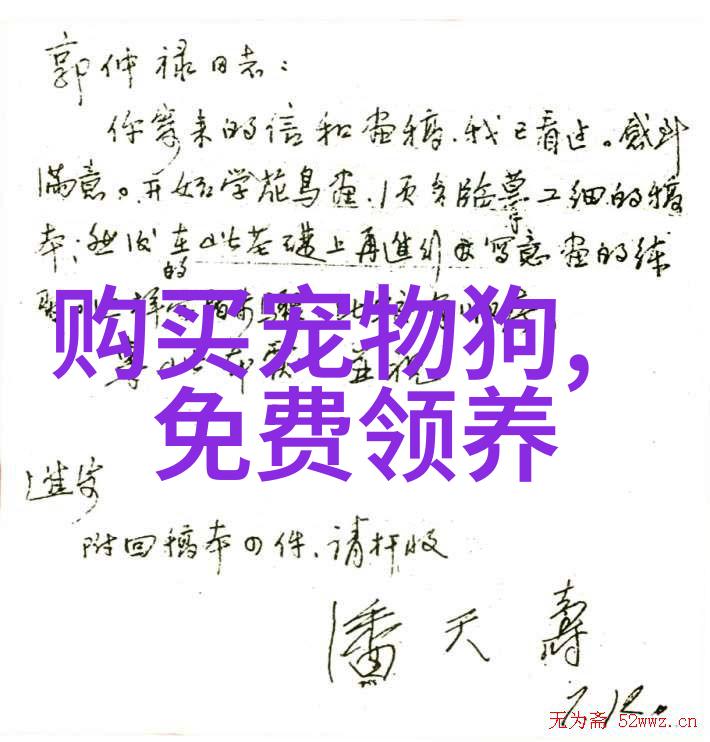 郭仲禄同志：
你寄来的信和画稿，我已看过。感到
满意。开始学花鸟画，须多临摹工细的稿
本；然后在此基础上再进行写意画的练
的
购买宠物狗，
免费领养
进安
附回稿本四件、请检收
潘天寿
7.12.
无为斋 52wwz.cn